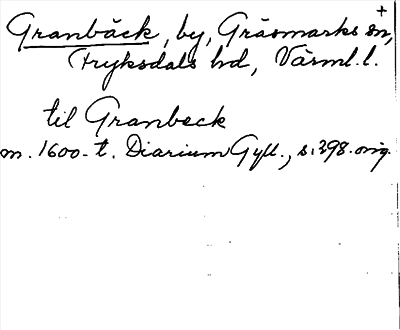 Granbäck, by, Gräsmarks sn, +
Fryksdals hd, Värml. l.
til Granbeck
m. 1600-t. Diarium Gyll., s. 398. orig.